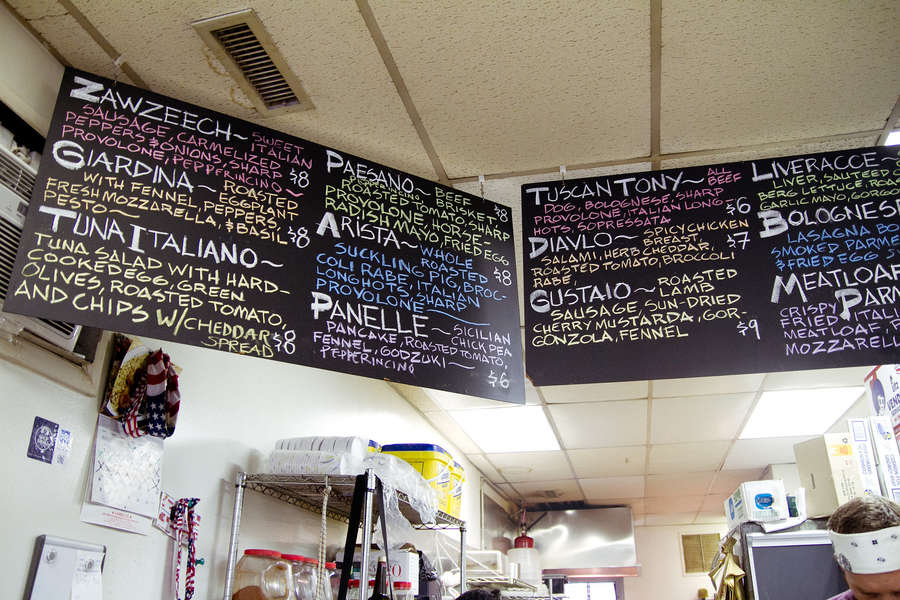 ZAWZEECH~ SWEET
SAUSAGE, CARMELIZED ITALIAN
PEPPERS & ONIONS, SHARP
PROVOLONE, PEPPERINCINO~ $8
GIARDINA~ ROASTED
WITH FENNEL, EGGPLANT
FRESH MOZZARELLA, PEPPERS,
PESTO~ & BASIL $8
TUNA ITALIANO~
TUNA SALAD WITH HARD-
COOKED EGG, GREEN
OLIVES, ROASTED TOMATO,
AND CHIPS W/CHEDDAR $8
SPREAD
PAESANO~ BEEF $8
ROASTED TOMATO, BRISKET,
PROVOLONE, SHARP
RADISH MAYO, FRIED EGG HORSE-
ARISTA~ WHOLE $8
SUCKLING ROASTED
COLI RABE, PIG, BROC-
LONGHOTS, ITALIAN
PROVOLONE, SHARP
PANELLE~ SICILIAN
PANCAKE, ROASTED TOMATO, CHICK PEA
FENNEL, GODZUKI~
PEPPERINCINO $6
TUSCAN TONY~ ALL BEEF
DOG, BOLOGNESE, SHARP
PROVOLONE, ITALIAN LONG
HOTS, SOPRESSATA $6
DIAVLO~ SPICY CHICKEN
BREAST, $7
SALAMI, HERB CHEDDAR,
ROASTED TOMATO, BROCCOLI
RABE,
GUSTAIO~ ROASTED
LAMB
SAUSAGE, SUN-DRIED
CHERRY MUSTARDA, GOR-
GONZOLA, FENNEL $9
LIVERACCE~
LIVER, SAUTEED
BERG LETTUCE, ROA
GARLIC MAYO, GOR
BOLOGNESE
LASAGNA BO
SMOKED PARME
& FRIED EGG
MEATLOAF
PARM
CRISPY
FRIED ITALI
MEATLOAF, P
MOZZARELL